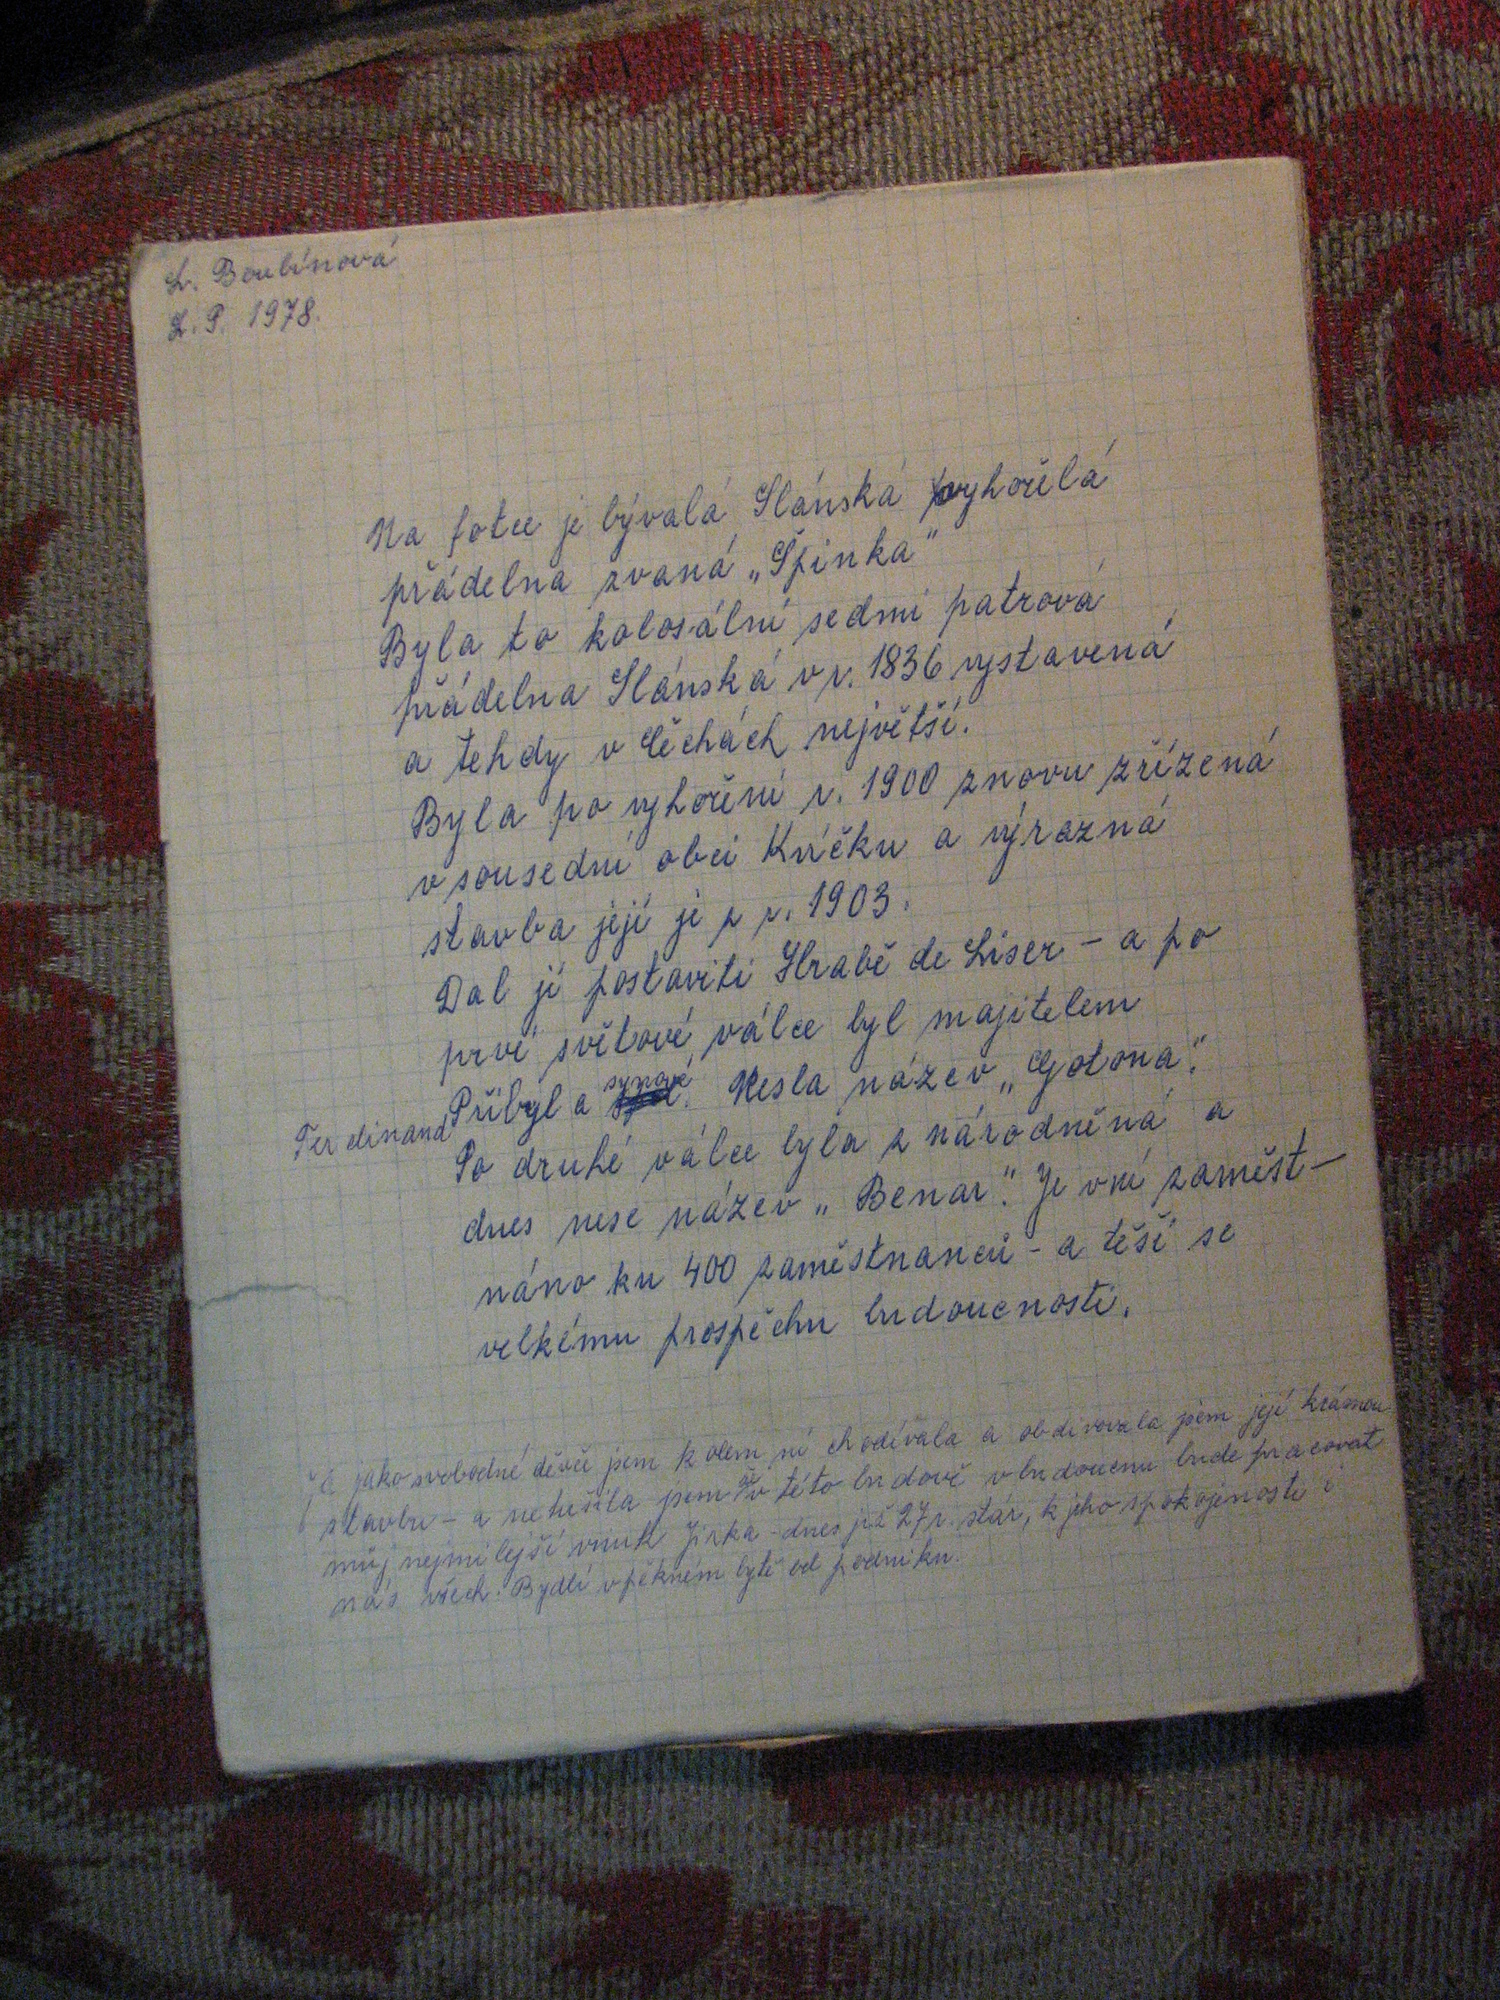 L. Boubínová
L. P. 1978.
Na fotce je bývalá Slánská vyhořelá
přádelna zvaná „Špinka"
Byla to kolosální sedmi patrová
přádelna Slánská v r. 1836 vystavená
a tehdy v Čechách největší.
Byla po vyhoření r. 1900 znovu zřízená
v sousední obci Kvíčku a výrazná
stavba její je z r. 1903.
Dal ji postaviti Hrabě de Liser – a po
prvé světové válce byl majitelem
Ferdinand Přibyl a synové. Nesla název „Gotona".
Po druhé válce byla z národněná a
dnes nese název „Benar". Je v ní zaměst–
náno ku 400 zaměstnanců – a těší se
velkému prospěchu budoucnosti.
Já jako svobodné děvče jsem kolem ní chodívala a obdivovala jsem její krásnou
stavbu – a netušila jsem že v této budově v budoucnu bude pracovat
můj nejmilejší vnuk Jirka – dnes již 27 r. stár, k jeho spokojenosti i
nás všech. Bydlí v pěkném bytě od podniku.